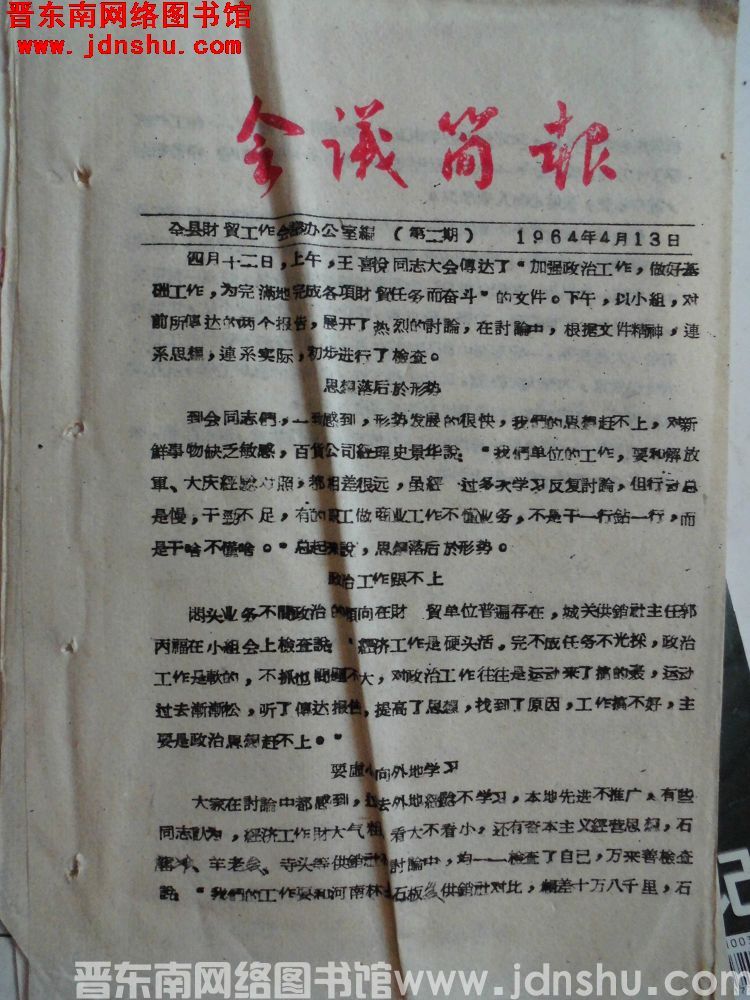 晋东南网络图书馆
www.jdnshu.com
会议简报
全县財貿工作会議办公室編 (第二期) 1964年4月13日
四月十二日，上午，王喜 同志大会傳达了“加强政治工作，做好基
础工作，为完滿地完成各項財貿任务而奋斗”的文件。下午，以小組，对
前所傳达的两个报告，展开了热烈的討論，在討論中，根据文件精神，連
系思想，連系实际，初步进行了檢查。
思想落后於形势
到会同志們，一致感到，形势发展的很快，我們的思想赶不上，对新
鮮事物缺乏敏感，百貨公司經理史景华說：“我們单位的工作，要和解放
軍、大庆經驗对照，都相差很远，虽經 过多次学习反复討論，但行动总
是慢，干劲不足，有的职工做商业工作不懂业务，不是干一行鉆一行，而
是干啥不懂啥。”总起来說，思想落后於形势。
政治工作跟不上
悶头业务不問政治的傾向在財 貿单位普遍存在，城关供銷社主任郭
丙福在小組会上檢查說：“經济工作是硬头活，完不成任务不光採，政治
工作是軟的，不抓也問題不大，对政治工作往往是运动来了搞的轰，运动
过去漸漸松，听了傳达报告，提高了思想，找到了原因，工作搞不好，主
要是政治思想赶不上。”
要虛心向外地学习
大家在討論中都感到，过去外地經驗不学习，本地先进不推广，有些
同志認为，經济工作財大气粗，看大不看小，还有资本主义經营思想，石
、车老 、寺头等供銷社討論中，均一一檢查了自己，万来善檢查
說：“我們的工作要和河南林 石板 供銷社对比，相差十万八千里，石
晋东南网络图书馆www.jdnshu.com